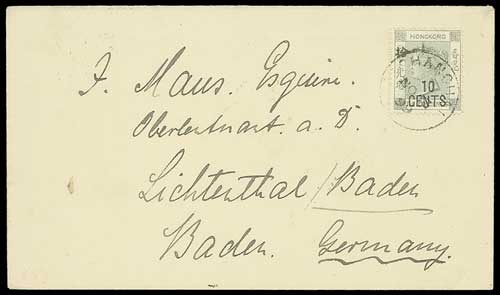 HONGKONG
SHANGHAI
10
CENTS
F. Maus. Esquire.
Oberleutnant. a. D.
Lichtenthal/Baden
Baden. Germany.